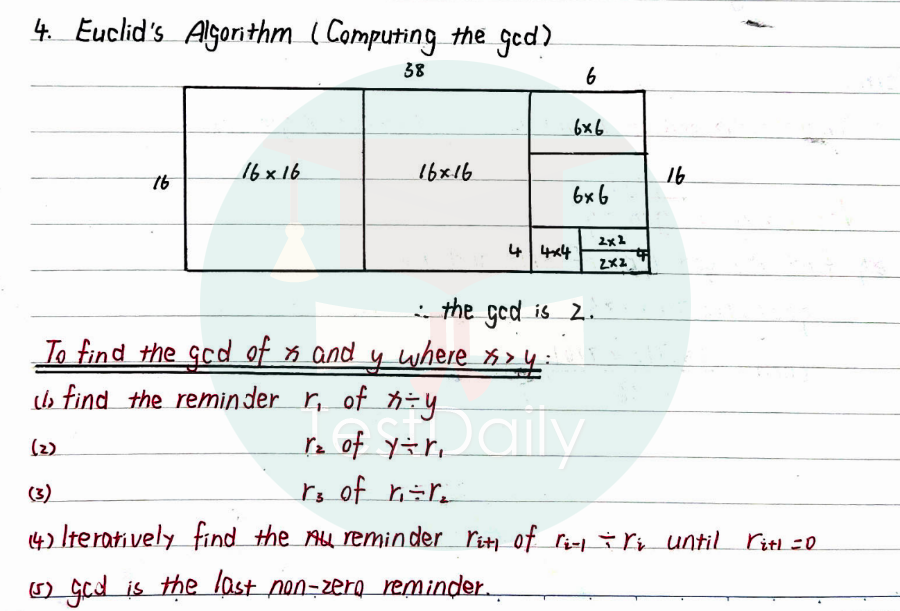 4. Euclid's Algorithm (Computing the gcd)
38 6
16 16 x 16 16x16 6x6 16
6x6
4 4x4 2x2 4
2x2
∴ the gcd is 2.
To find the gcd of x and y where x > y:
(1) find the reminder r₁ of x÷y
(2) r₂ of y÷r₁
(3) r₃ of r₁÷r₂
(4) Iteratively find the reminder rᵢ₊₁ of rᵢ₋₁ ÷ rᵢ until rᵢ₊₁ =0
(5) gcd is the last non-zero reminder.
TestDaily